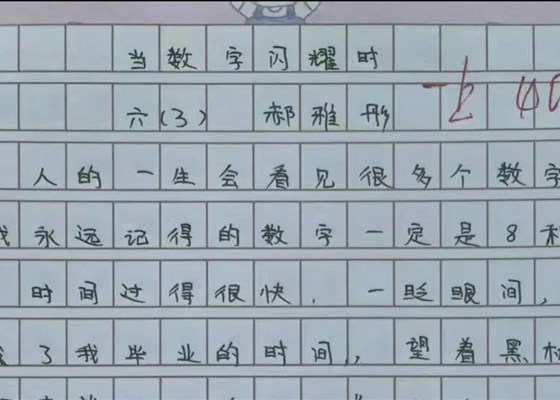 当数字闪耀时
六(3) 郝雅彤
40
人的一生会看见很多个数字
我永远记得的数字一定是8和
时间过得很快，一眨眼间，
了我毕业的时间，望着黑板